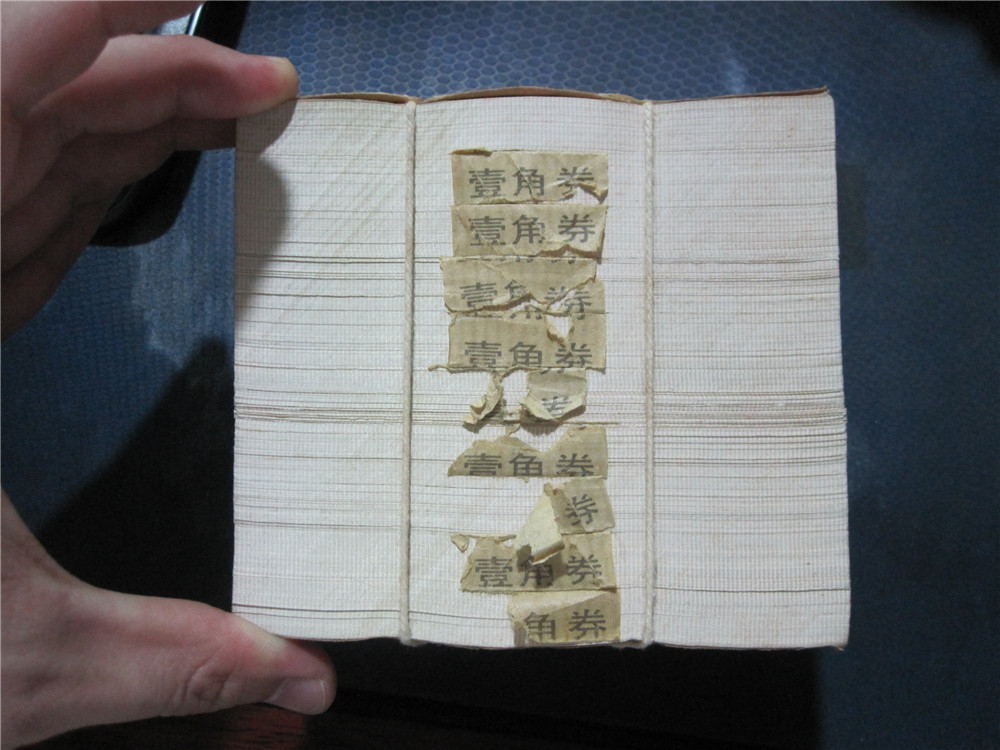 壹角券
壹角券
壹角券
壹角券
券
壹角券
券
壹角券
角券